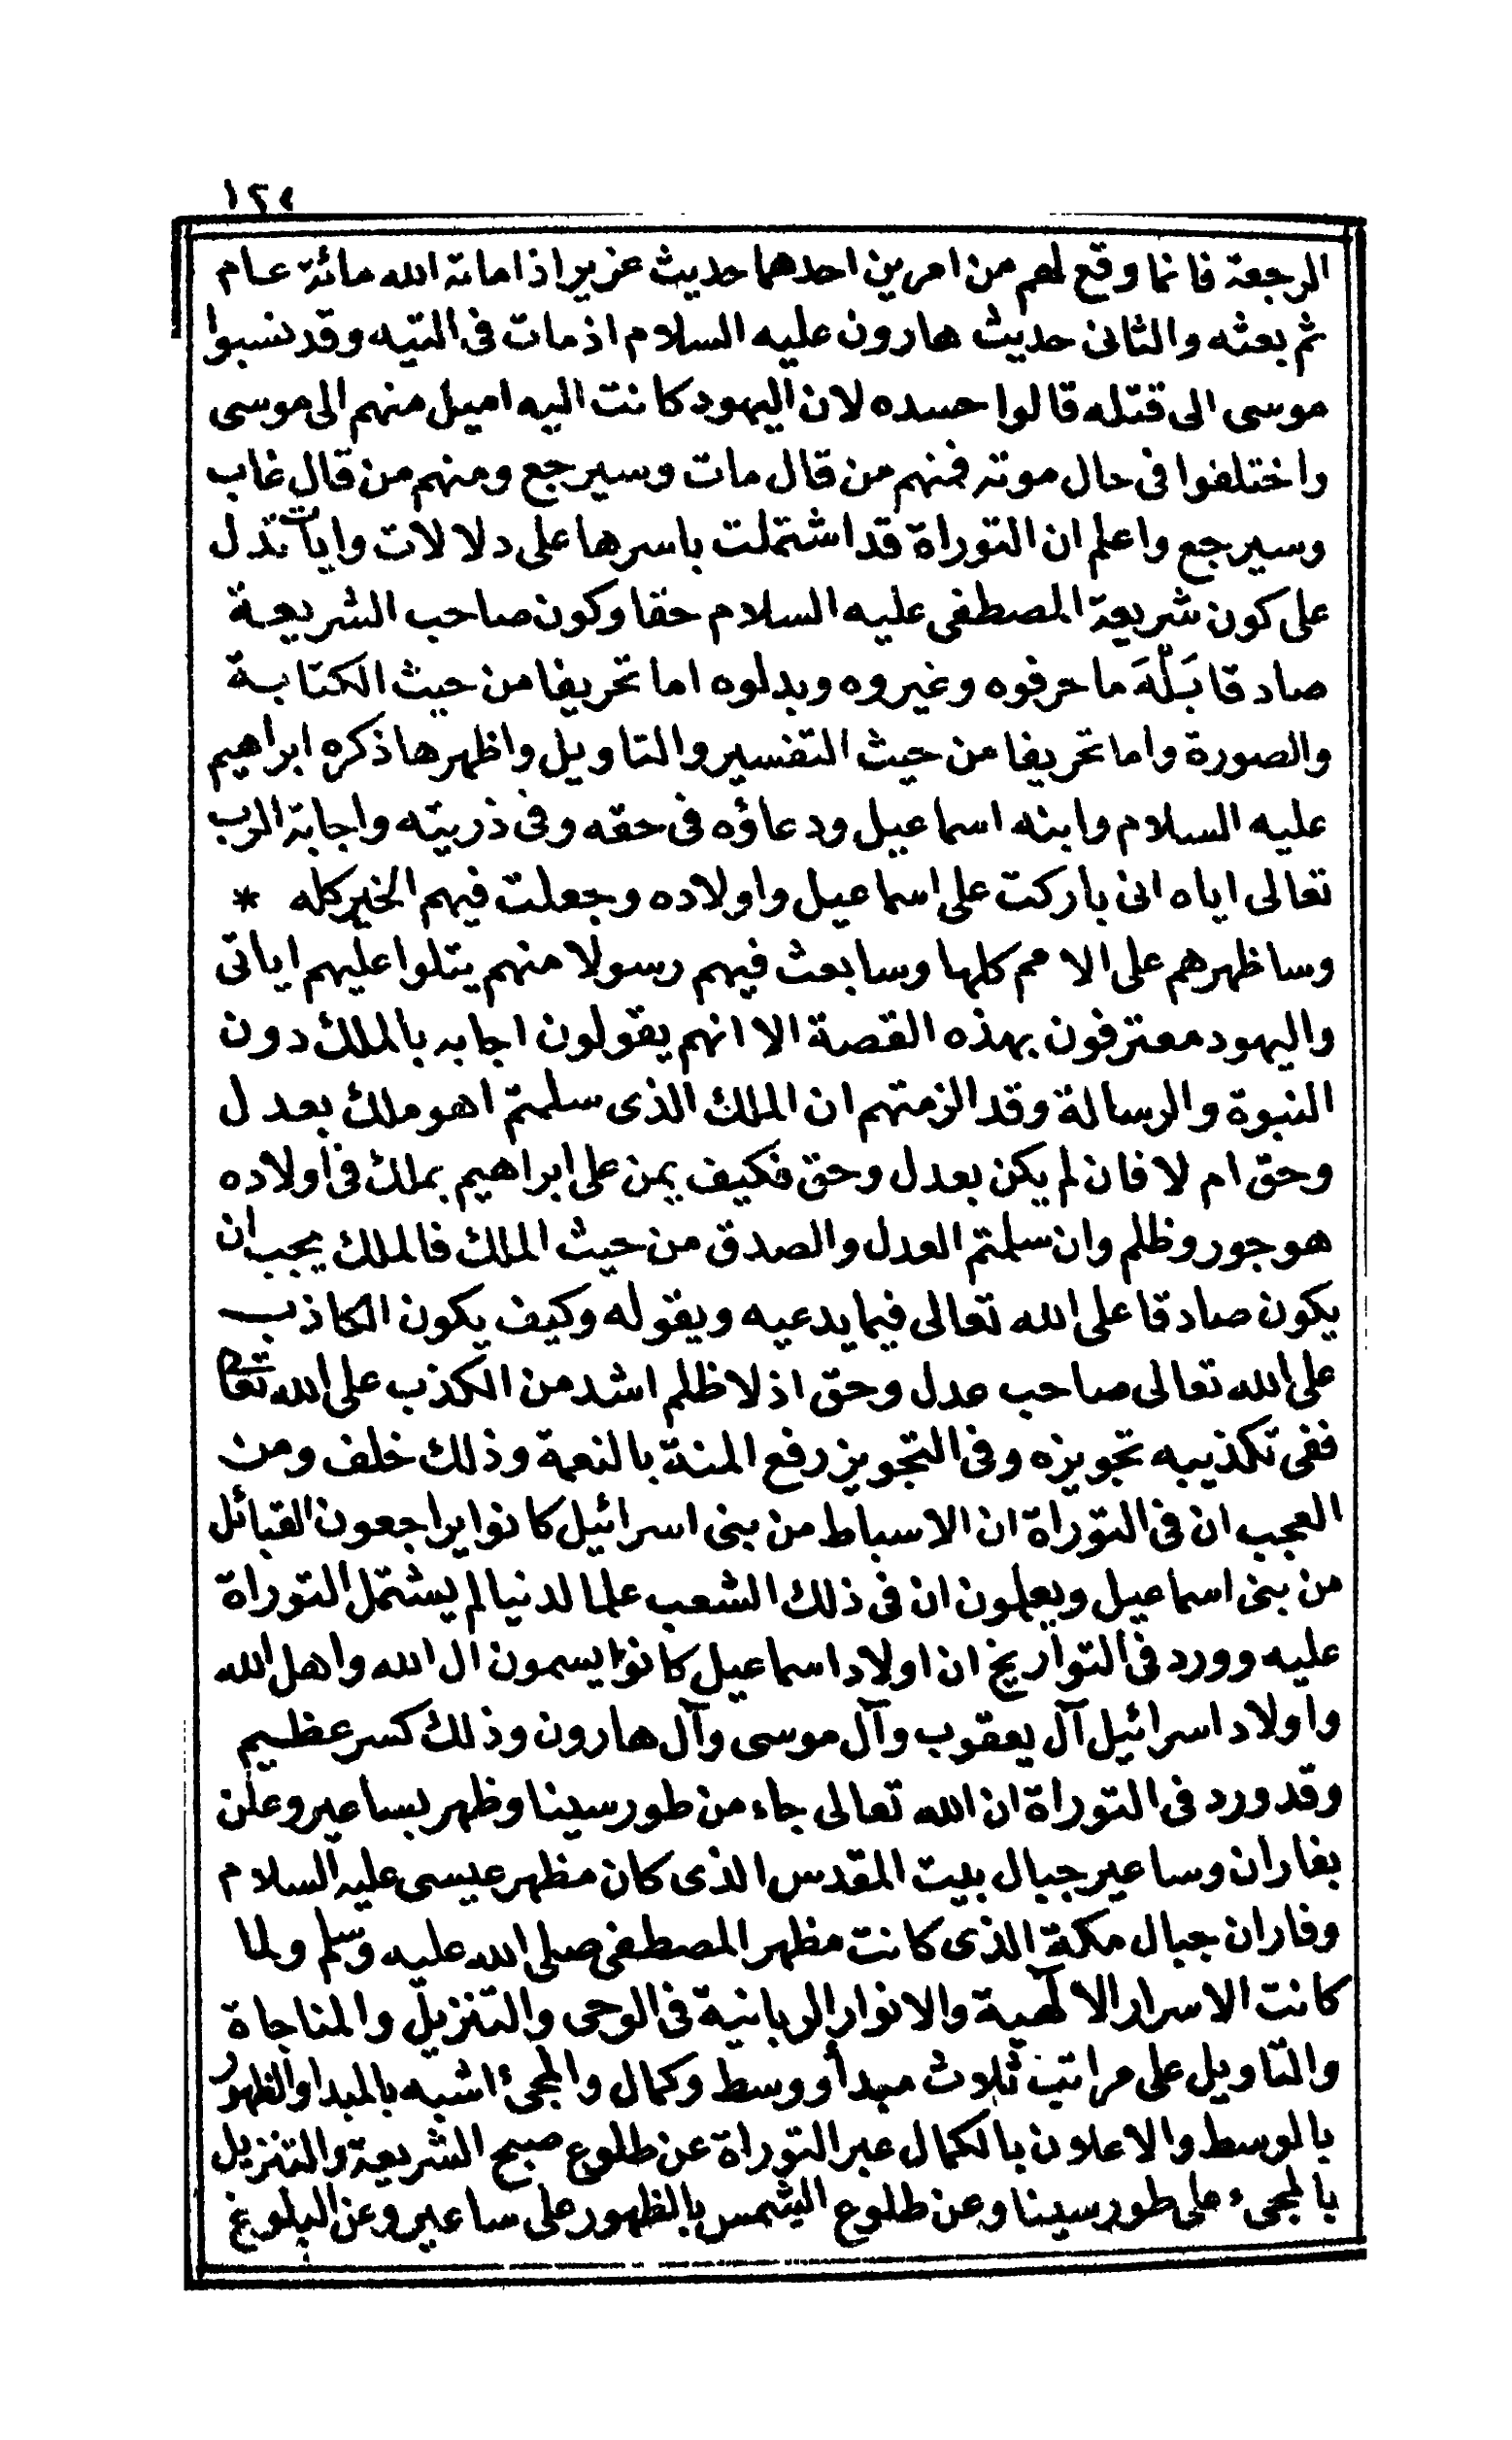 الرجعة فانما وقع لهم من امرين احدهما حديث عزير اذ اماته الله مائة عام
ثم بعثه والثانى حديث هارون عليه السلام اذ مات فى التيه وقد نسبوا
موسى الى قتله قالوا حسده لان اليهود كانت اليه اميل منهم الى موسى
واختلفوا فى حال موته فمنهم من قال مات وسيرجع ومنهم من قال غاب
وسيرجع واعلم ان التوراة قد اشتملت باسرها على دلالات وايات تدل
على كون شريعة المصطفى عليه السلام حقا وكون صاحب الشريعة
صادقا بَلْهَ ما حرفوه وغيروه وبدلوه اما تحريفا من حيث الكتابة
والصورة واما تحريفا من حيث التفسير والتاويل واظهرها ذكره ابراهيم
عليه السلام وابنه اسماعيل ودعاؤه فى حقه وفى ذريته واجابة الرب
تعالى اياه انى باركت على اسماعيل واولاده وجعلت فيهم الخير كله *
وساظهرهم على الامم كلها وسابعث فيهم رسولا منهم يتلوا عليهم اياتى
واليهود معترفون بهذه القصة الا انهم يقولون اجابه بالملك دون
النبوة والرسالة وقد الزمتهم ان الملك الذى سلمتم اهو ملك بعدل
وحق ام لا فان لم يكن بعدل وحق فكيف يمن على ابراهيم بملك فى اولاده
هو جور وظلم وان سلمتم العدل والصدق من حيث الملك فالملك يجب ان
يكون صادقا على الله تعالى فيما يدعيه ويقوله وكيف يكون الكاذب
على الله تعالى صاحب عدل وحق اذ لا ظلم اشد من الكذب على الله تعا
ففى تكذيبه تجويزه وفى التجويز رفع المنة بالنعمة وذلك خلف ومن
العجب ان فى التوراة ان الاسباط من بنى اسرائيل كانوا يراجعون القبائل
من بنى اسماعيل ويعلمون ان فى ذلك الشعب علما لدنيا لم يشتمل التوراة
عليه وورد فى التواريخ ان اولاد اسماعيل كانوا يسمون ال الله واهل الله
واولاد اسرائيل آل يعقوب وآل موسى وآل هارون وذلك كسر عظيم
وقد ورد فى التوراة ان الله تعالى جاء من طور سينا وظهر بساعير وعلن
بفاران وساعير جبال بيت المقدس الذى كان مظهر عيسى عليه السلام
وفاران جبال مكة الذى كانت مظهر المصطفى صلى الله عليه وسلم ولما
كانت الاسرار الالهية والانوار الربانية فى الوحى والتنزيل والمناجاة
والتاويل على مراتب ثلاث مبدأ ووسط وكمال والمجئ اشبه بالمبدا والظهور
بالوسط والاعلان بالكمال عبر التوراة عن طلوع صبح الشريعة والتنزيل
بالمجىء على طور سينا وعن طلوع الشمس بالظهور على ساعير وعن البلوغ